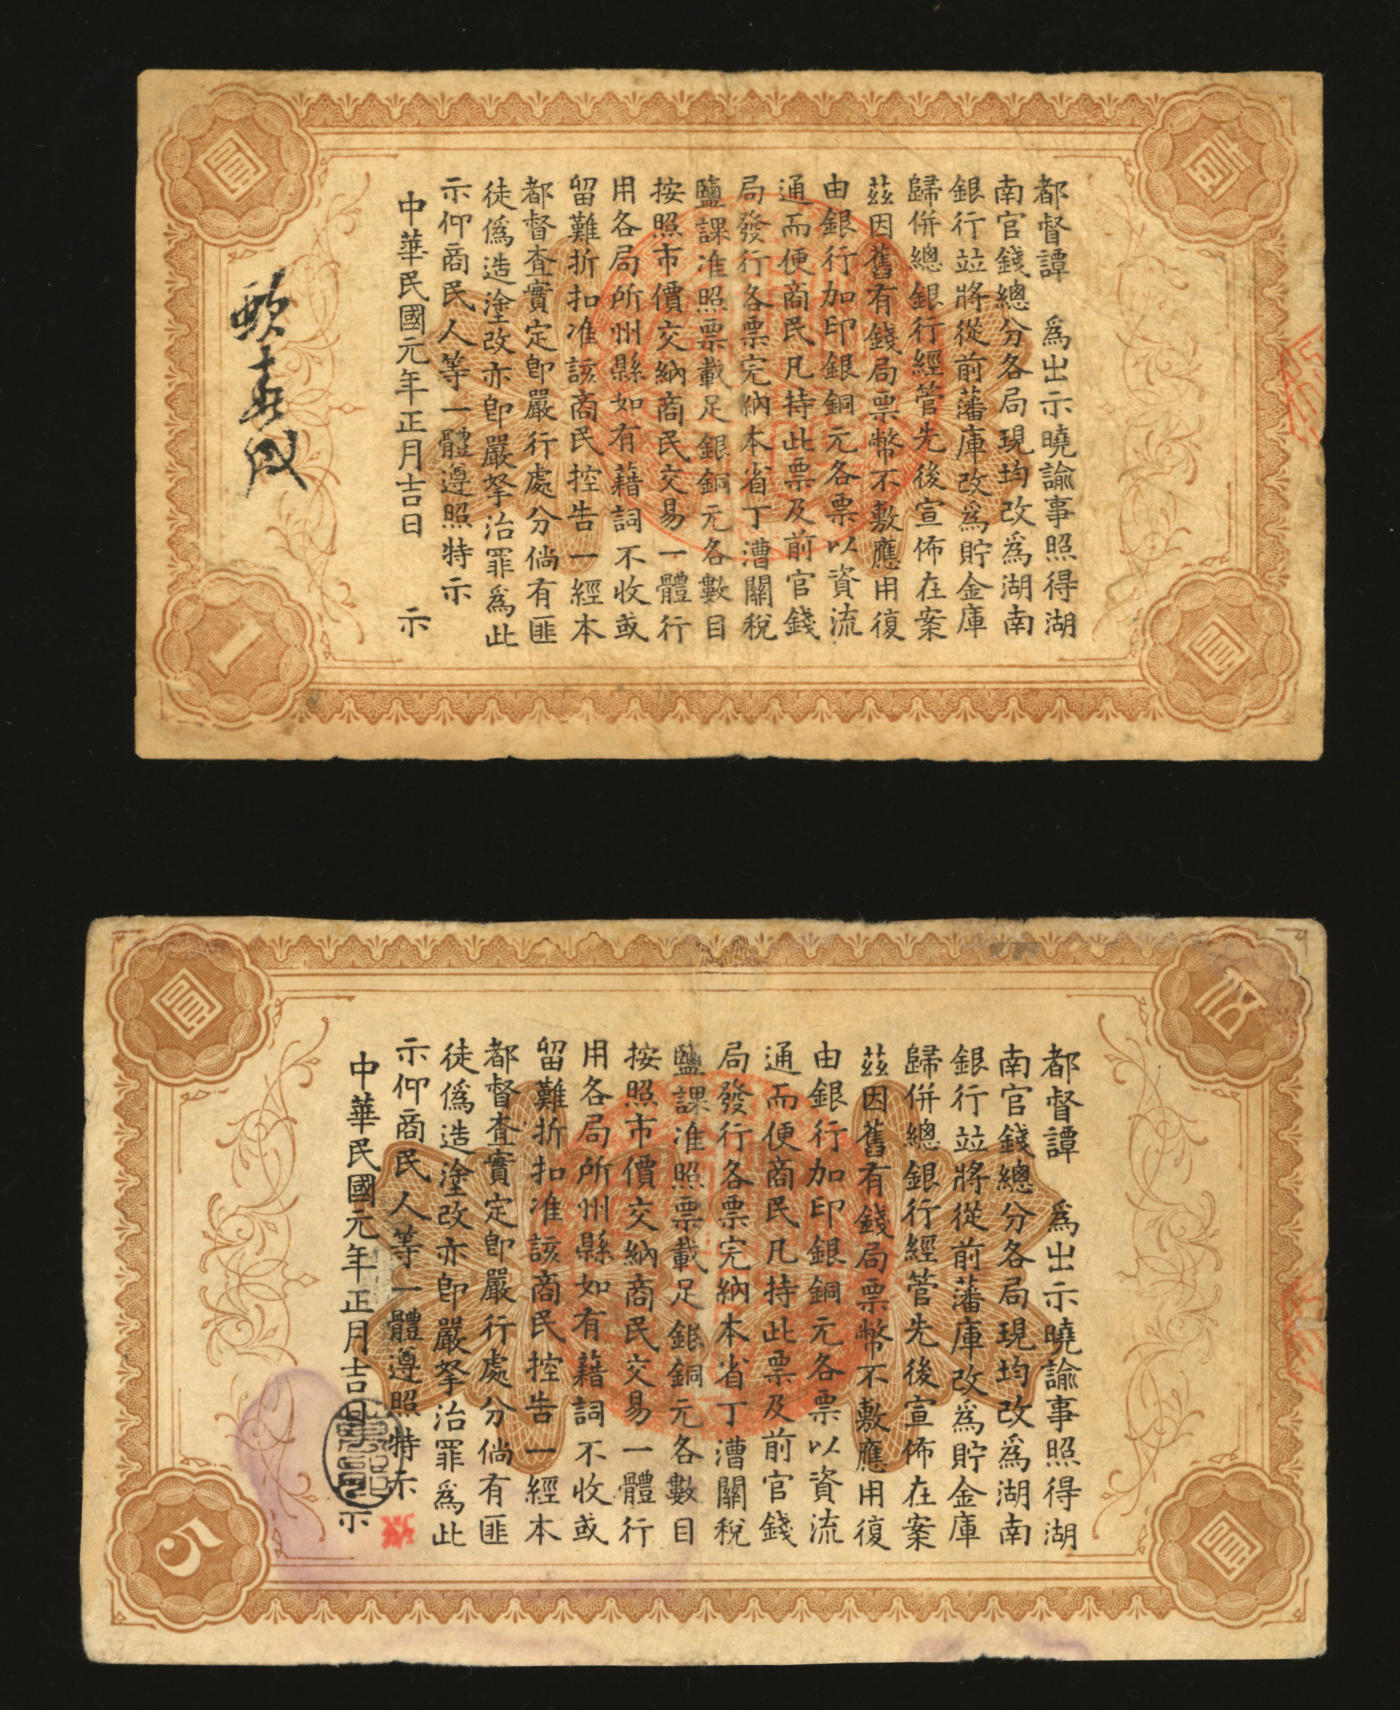 圓
壹
都督譚　為出示曉諭事照得湖
南官錢總分各局現均改為湖南
銀行竝將從前藩庫改為貯金庫
歸併總銀行經管先後宣佈在案
茲因舊有錢局票幣不敷應用復
由銀行加印銀銅元各票以資流
通而便商民凡持此票及前官錢
局發行各票完納本省丁漕關稅
鹽課准照票載足銀銅元各數目
按照市價交納商民交易一體行
用各局所州縣如有藉詞不收或
留難折扣准該商民控告一經本
都督查實定卽嚴行處分倘有匪
徒僞造塗改亦卽嚴拏治罪爲此
示仰商民人等一體遵照特示
中華民國元年正月吉日　示
1
圓
圓
伍
都督譚　為出示曉諭事照得湖
南官錢總分各局現均改為湖南
銀行竝將從前藩庫改為貯金庫
歸併總銀行經管先後宣佈在案
茲因舊有錢局票幣不敷應用復
由銀行加印銀銅元各票以資流
通而便商民凡持此票及前官錢
局發行各票完納本省丁漕關稅
鹽課准照票載足銀銅元各數目
按照市價交納商民交易一體行
用各局所州縣如有藉詞不收或
留難折扣准該商民控告一經本
都督查實定卽嚴行處分倘有匪
徒僞造塗改亦卽嚴拏治罪爲此
示仰商民人等一體遵照特示
中華民國元年正月吉日　示
5
圓